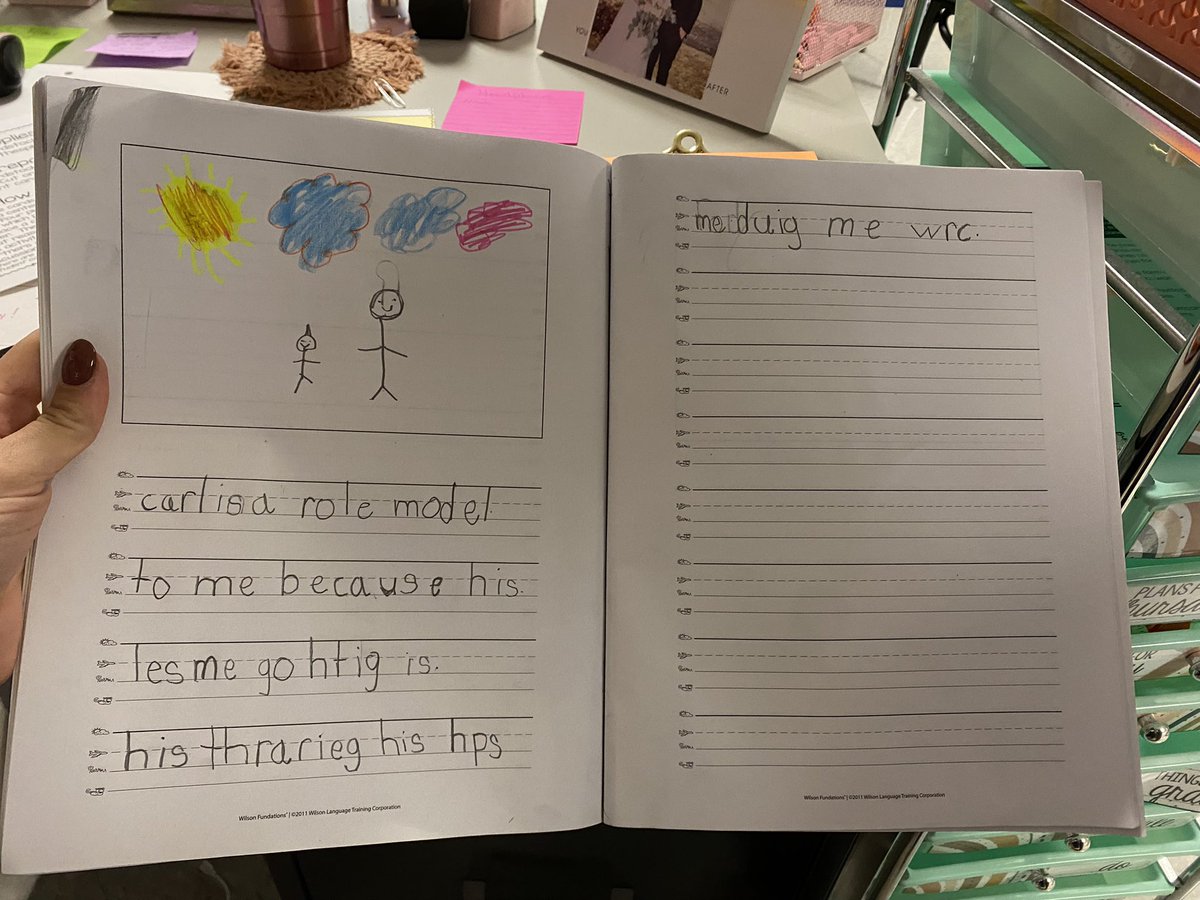 YOU
AFTER
carl is a role model
to me because his.
les me go htig is.
his thrarieg his hps
Wilson Fundations® | ©2011 Wilson Language Training Corporation
me duig me wrc.
Wilson Fundations® | ©2011 Wilson Language Training Corporation
PLANS F
THING